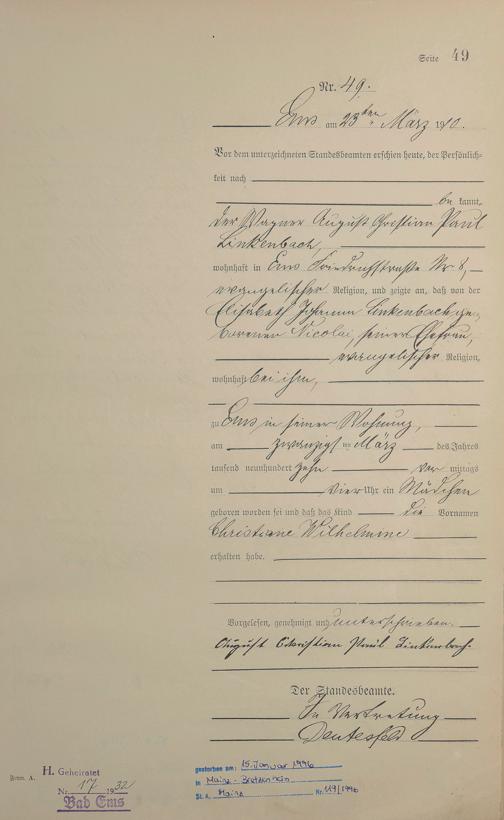 Seite 49
Nr. 49.
Ems am 23ten März 1910.
Vor dem unterzeichneten Standesbeamten erschien heute, der Persönlich-
keit nach
be kannt,
der Wagner August Christian Paul
Linkenbach,
wohnhaft in Ems Friedrichstraße Nr 8,
evangelischer Religion, und zeigte an, daß von der
Elisabeth Johanna Linkenbach ge-
borenen Nicolai, seiner Ehefrau,
evangelischer Religion,
wohnhaft bei ihm,
zu Ems in seiner Wohnung,
am zwanzigsten März des Jahres
tausend neunhundert zehn vor mittags
um vier Uhr ein Mädchen
geboren worden sei und daß das Kind die Vornamen
Christiane Wilhelmine
erhalten habe.
Vorgelesen, genehmigt und unterschrieben.
August Christian Paul Linkenbach.
Der Standesbeamte.
In Vertretung
H. Geheiratet
Nr. 17 1932
Bad Ems
gestorben am: 15. Januar 1996
in Mainz-Bretzenheim
St. A. Mainz Nr. 119/1996
A.